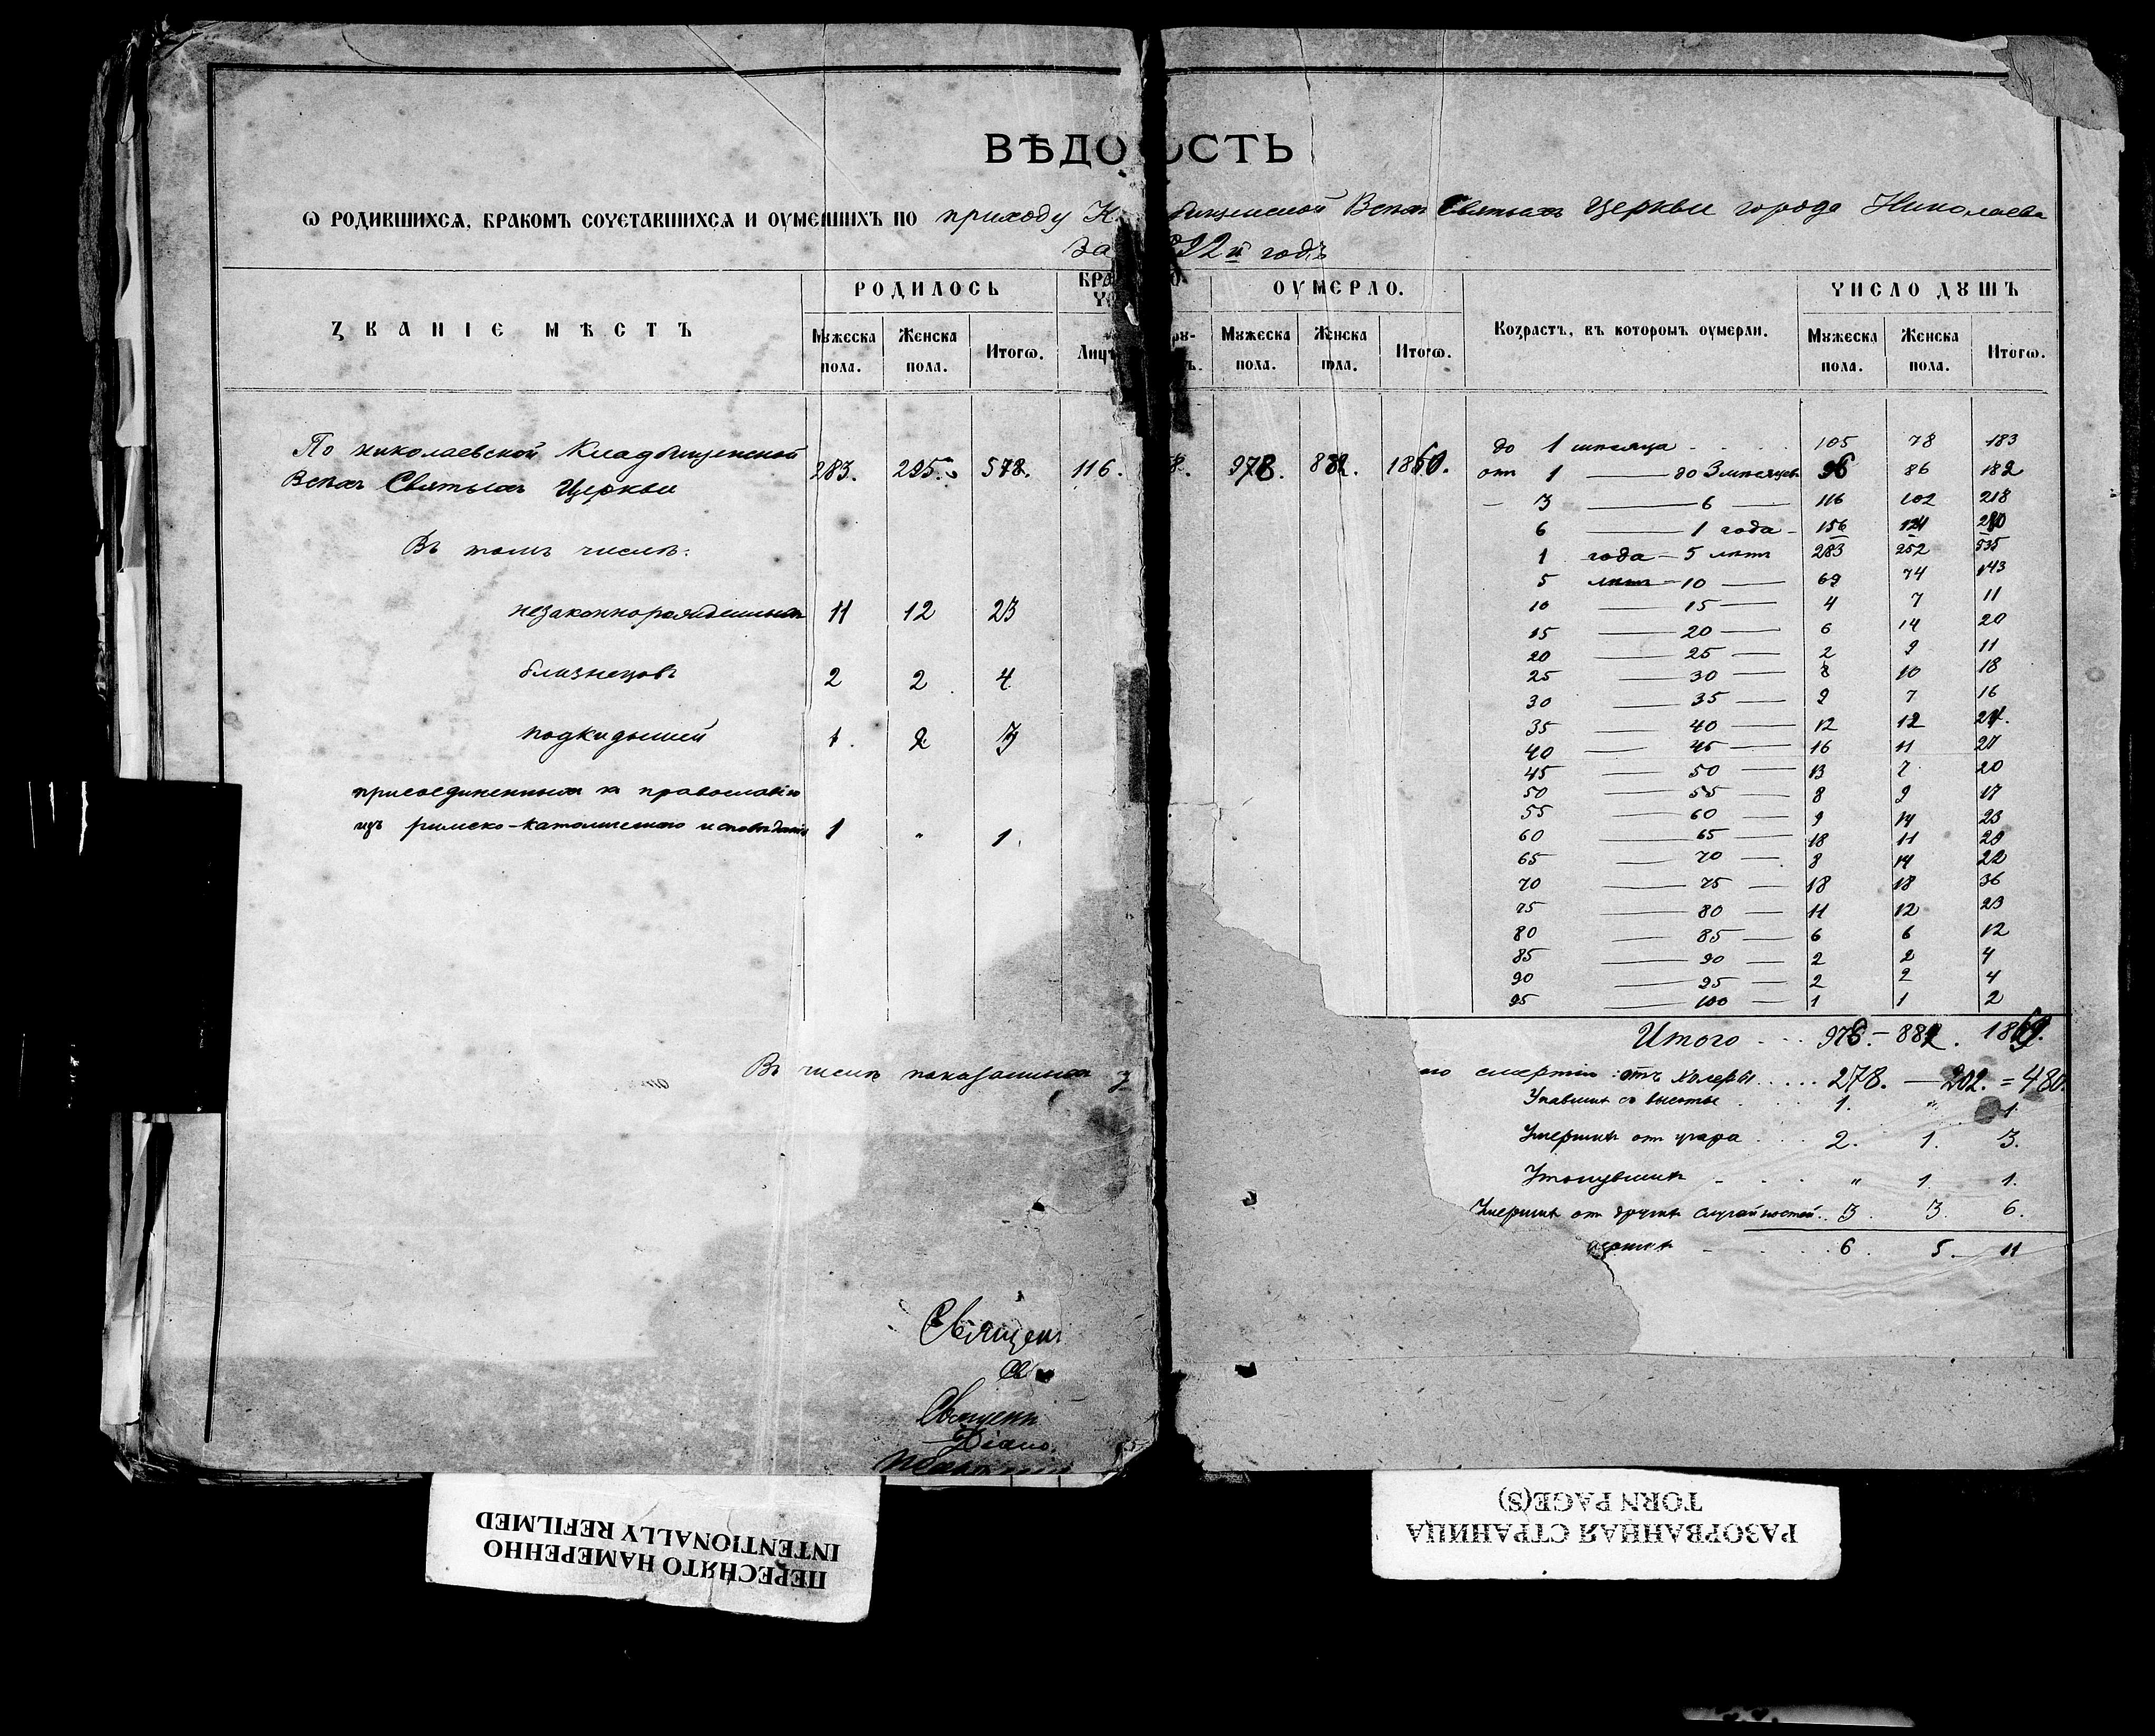 ВѢДО ОСТЬ
Ѡ РОДИВШИХСѦ, БРАКОМЪ СОЧЕТАВШИХСѦ И ОУМЕШИХЪ ПО приходу К бищенской Всѣхъ Святыхъ Церкви города Николаева
За 92й годъ
ЗВАНІЕ МѢСТЪ
РОДИЛОСЬ
ОУМЕРЛО.
Возрастъ, въ которомъ оумерли.
ЧИСЛО ДУШЪ
Мужеска пола.
Женска пола.
Итогѡ.
Лицъ
Мужеска пола.
Женска пола.
Итогѡ.
Мужеска пола.
Женска пола.
Итогѡ.
По николаевской Кладбищенской
Всѣхъ Святыхъ Церкви 283. 295. 578. 116. 8. 978. 882. 1860.
Въ томъ числѣ:
незаконнорожденныхъ 11 12 23
близнецовъ 2 2 4
подкидышей 1. 2 3
присоединенныхъ къ православію
изъ римско-католическаго исповѣданія 1 " 1.
до 1 мѣсяца 105 78 183
отъ 1 до 3 мѣсяцевъ 96 86 182
— 3 — 6 — 116 102 218
6 — 1 года — 156 124 280
1 года — 5 лѣтъ 283 252 535
5 лѣтъ — 10 — 69 74 143
10 — 15 — 4 7 11
15 — 20 — 6 14 20
20 — 25 — 2 9 11
25 — 30 — 8 10 18
30 — 35 — 9 7 16
35 — 40 — 12 12 24.
40 — 45 — 16 11 27
45 — 50 — 13 7 20
50 — 55 — 8 9 17
55 — 60 — 9 14 23
60 — 65 — 18 11 29
65 — 70 — 8 14 22
70 — 75 — 18 18 36
75 — 80 — 11 12 23
80 — 85 — 6 6 12
85 — 90 — 2 2 4
90 — 95 — 2 2 4
95 — 100 — 1 1 2
Итого 978. — 882. 1860.
Въ числѣ показанныхъ
смертію: отъ Холеры 278. — 202. = 480.
Упавшихъ съ высоты 1. " 1.
Умершихъ отъ угара 2. 1. 3.
Утонувшихъ " 1. 1.
Умершихъ отъ другихъ случайностей 3. 3. 6.
6. 5. — 11
Священ
Св
Священн
Діако
ПЕРЕСНЯТО НАМЕРЕННО
INTENTIONALLY REFILMED
РАЗОРВАННАЯ СТРАНИЦА
TORN PAGE(S)